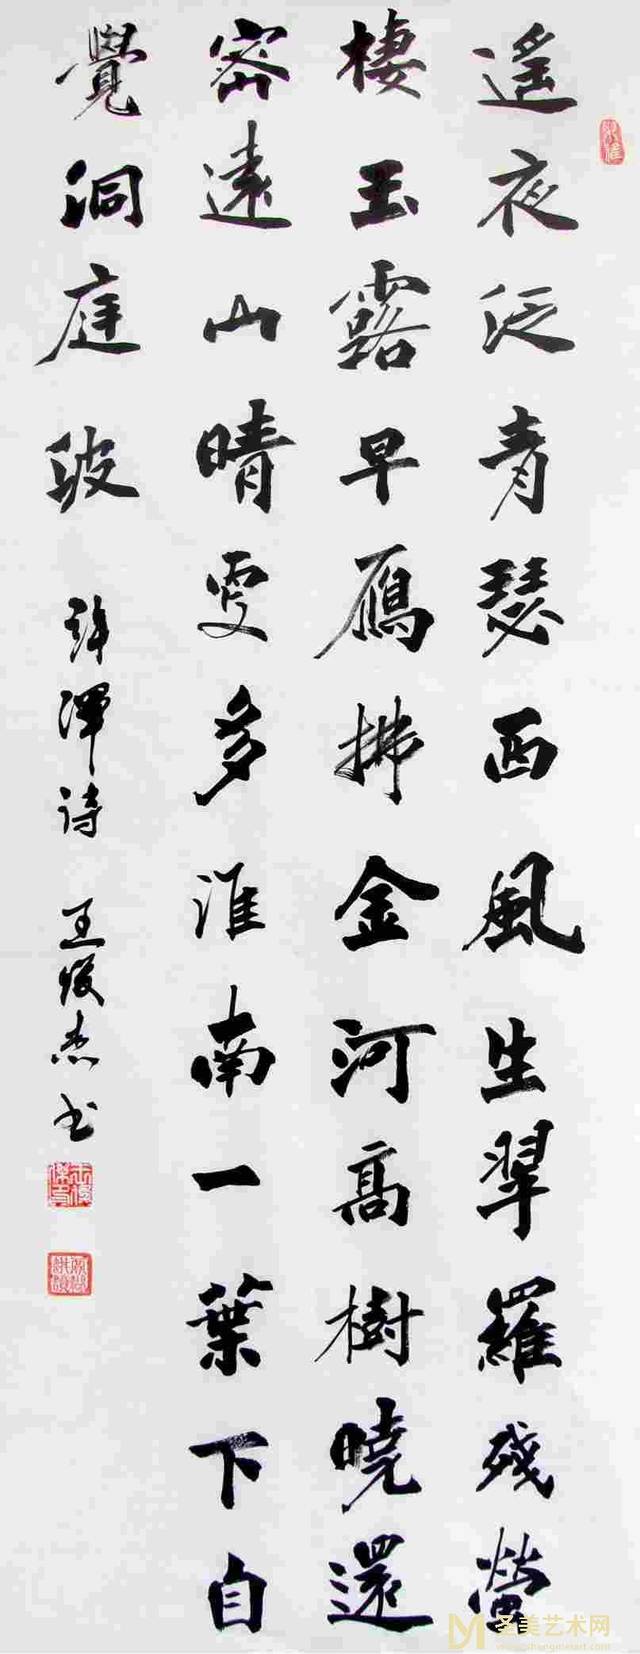 遙夜泛青瑟西風生翠羅残螢
棲玉露早鴈拂金河高樹曉還
密遠山晴更多淮南一葉下自
覺洞庭波 許渾诗 王俊杰书
圣美艺术网